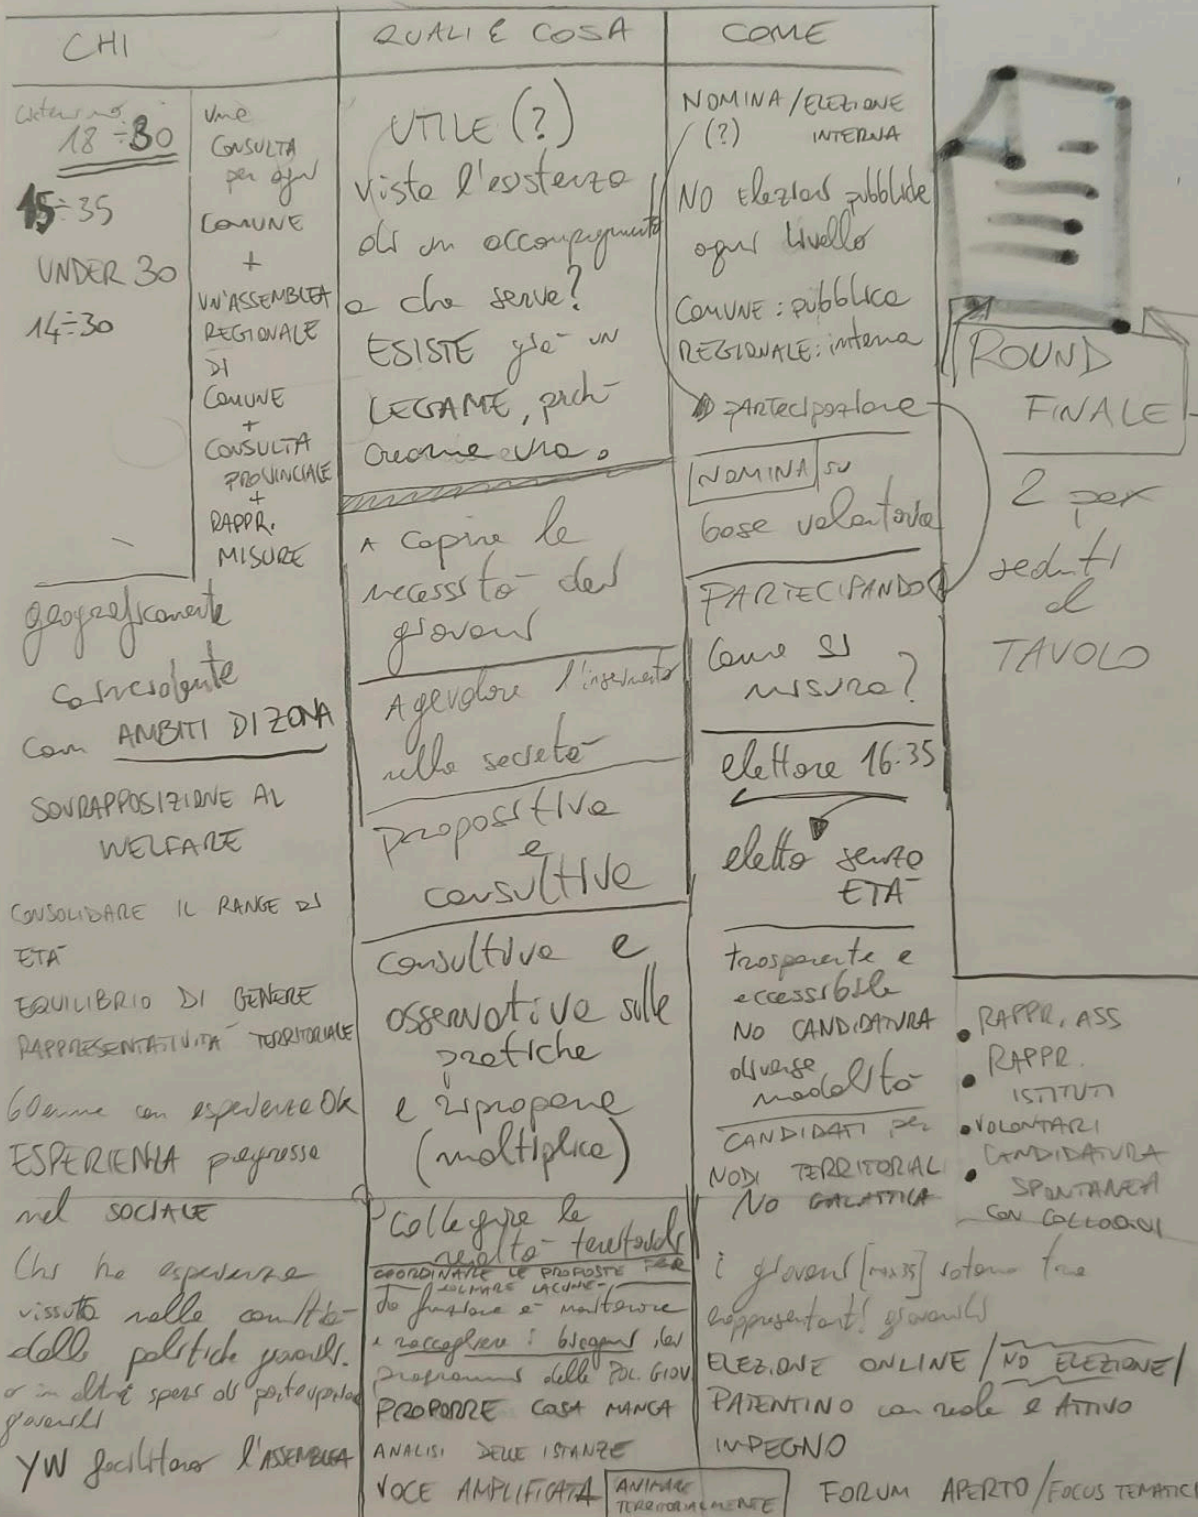 CHI
18÷30
15÷35
UNDER 30
14÷30
una
CONSULTA
per ogni
COMUNE
+
UN'ASSEMBLEA
REGIONALE
DI
COMUNE
+
CONSULTA
PROVINCIALE
+
RAPPR.
MISURE
geograficamente
coincidente
con AMBITI DI ZONA
SOVRAPPOSIZIONE AL
WELFARE
CONSOLIDARE IL RANGE DI
ETÀ
EQUILIBRIO DI GENERE
RAPPRESENTATIVITÀ TERRITORIALE
60enne con esperienza OK
ESPERIENZA pregressa
nel SOCIALE
Chi ha esperienza
vissuta nelle consulte
delle politiche giovanili.
o in altri spazi di partecipazione
giovanili
YW facilitano l'ASSEMBLEA
QUALI E COSA
UTILE (?)
vista l'esistenza
di un accompagnamento
a che serve?
ESISTE già un
LEGAME, perché
crearne uno.
A capire le
necessità dei
giovani
Agevolare l'inserimento
nella società
propositiva
e
consultiva
consultiva e
osservativa sulle
pratiche
e ripropone
(moltiplica)
Collegare le
realtà territoriali
COORDINARE LE PROPOSTE PER
COLMARE LACUNE
la funzione è
e raccogliere i bisogni dei
programmi delle POL. GIOV
PROPORRE COSA MANCA
ANALISI DELLE ISTANZE
VOCE AMPLIFICATA
ANIMARE
TERRITORIALMENTE
COME
NOMINA/ELEZIONE
(?) INTERNA
NO Elezioni pubbliche
ogni livello
COMUNE: pubblica
REGIONALE: interna
partecipazione
NOMINA su
base volontaria
PARTECIPANDO
Come si
misura?
elettore 16-35
eletto senza
ETÀ
trasparente e
accessibile
NO CANDIDATURA
diverse
modalità
CANDIDATI per
NODI TERRITORIALI
NO GALATTICA
i giovani [max35] votano tra
rappresentanti giovanili
ELEZIONE ONLINE/NO ELEZIONE/
PATENTINO con reale e ATTIVO
IMPEGNO
FORUM APERTO/FOCUS TEMATICI
ROUND
FINALE
2 per
seduti
al
TAVOLO
• RAPPR. ASS
• RAPPR.
ISTITUTI
• VOLONTARI
• CANDIDATURA
SPONTANEA
CON COLLOQUI